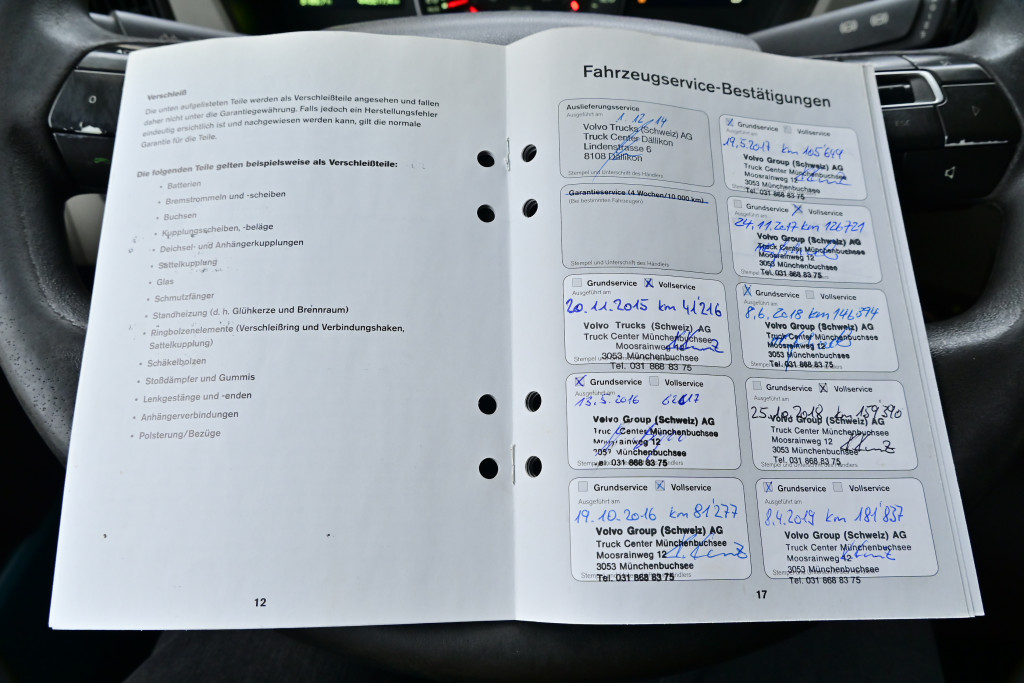 Verschleiß
Die unten aufgelisteten Teile werden als Verschleißteile angesehen und fallen
daher nicht unter die Garantiegewährung. Falls jedoch ein Herstellungsfehler
eindeutig ersichtlich ist und nachgewiesen werden kann, gilt die normale
Garantie für die Teile.
Die folgenden Teile gelten beispielsweise als Verschleißteile:
• Batterien
• Bremstrommeln und -scheiben
• Buchsen
• Kupplungsscheiben, -beläge
• Deichsel- und Anhängerkupplungen
• Sattelkupplung
• Glas
• Schmutzfänger
• Standheizung (d. h. Glühkerze und Brennraum)
• Ringbolzenelemente (Verschleißring und Verbindungshaken,
Sattelkupplung)
• Schäkelbolzen
• Stoßdämpfer und Gummis
• Lenkgestänge und -enden
• Anhängerverbindungen
• Polsterung/Bezüge
12
Fahrzeugservice-Bestätigungen
Auslieferungsservice
Ausgeführt am
1. 12. 14
Volvo Trucks (Schweiz) AG
Truck Center Dällikon
Lindenstrasse 6
8108 Dällikon
Stempel und Unterschrift des Händlers
Garantieservice (4 Wochen/10 000 km)
(Bei bestimmten Fahrzeugen)
Stempel und Unterschrift des Händlers
Grundservice X Vollservice
Ausgeführt am
20.11.2015 km 41'216
Volvo Trucks (Schweiz) AG
Truck Center Münchenbuchsee
Moosrainweg 12
3053 Münchenbuchsee
Tel. 031 868 83 75
X Grundservice Vollservice
Ausgeführt am
13.5.2016
Volvo Group (Schweiz) AG
Truc Center Münchenbuchsee
Moosrainweg 12
3053 Münchenbuchsee
031 868 83 75
Grundservice X Vollservice
Ausgeführt am
19.10.2016 km 81'277
Volvo Group (Schweiz) AG
Truck Center Münchenbuchsee
Moosrainweg 12
3053 Münchenbuchsee
Tel. 031 868 83 75
X Grundservice Vollservice
Ausgeführt am
19.5.2017 km 105'649
Volvo Group (Schweiz) AG
Truck Center Münchenbuchsee
Moosrainweg 12
3053 Münchenbuchsee
Tel. 031 868 83 75
Grundservice X Vollservice
24.11.2017 km 126721
Volvo Group (Schweiz) AG
Truck Center Münchenbuchsee
Moosrainweg 12
3053 Münchenbuchsee
Tel. 031 868 83 75
X Grundservice Vollservice
Ausgeführt am
8.6.2018 km 146'594
Volvo Group (Schweiz) AG
Truck Center Münchenbuchsee
Moosrainweg 12
3053 Münchenbuchsee
Tel. 031 868 83 75
Grundservice X Vollservice
Ausgeführt am
25.10.2018 km 159'390
Volvo Group (Schweiz) AG
Truck Center Münchenbuchsee
Moosrainweg 12
3053 Münchenbuchsee
Tel. 031 868 83 75
X Grundservice Vollservice
Ausgeführt am
8.4.2019 km 181'837
Volvo Group (Schweiz) AG
Truck Center Münchenbuchsee
Moosrainweg 12
3053 Münchenbuchsee
Tel. 031 868 83 75
17